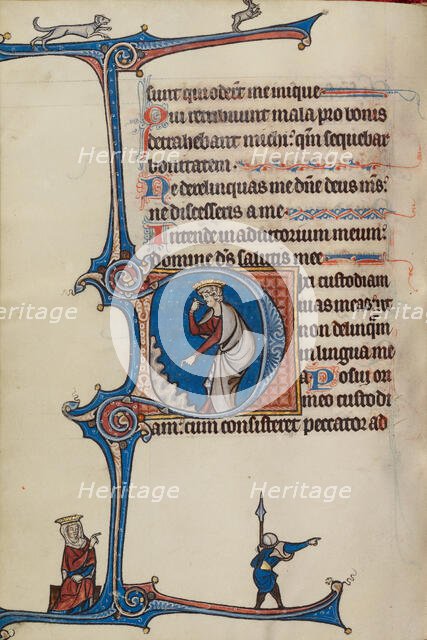 sunt qui oder̄t me inique
Qui retribuunt mala pro bonis
Heritage Heritage
detrahebant michi: qm̄ sequebar
bonitatem.
Ne derelinquas me dn̄e deus ms̄:
ne discesseris a me.
Intende in adiutorium meum:
domine ds̄ salutis mee
custodiam
Heritage Heritage
uias meas: ut
non delinqm̄
in lingua me
a Posui ori
meo custodi
am: cum consisteret peccator ad
Heritage Heritage Heritage